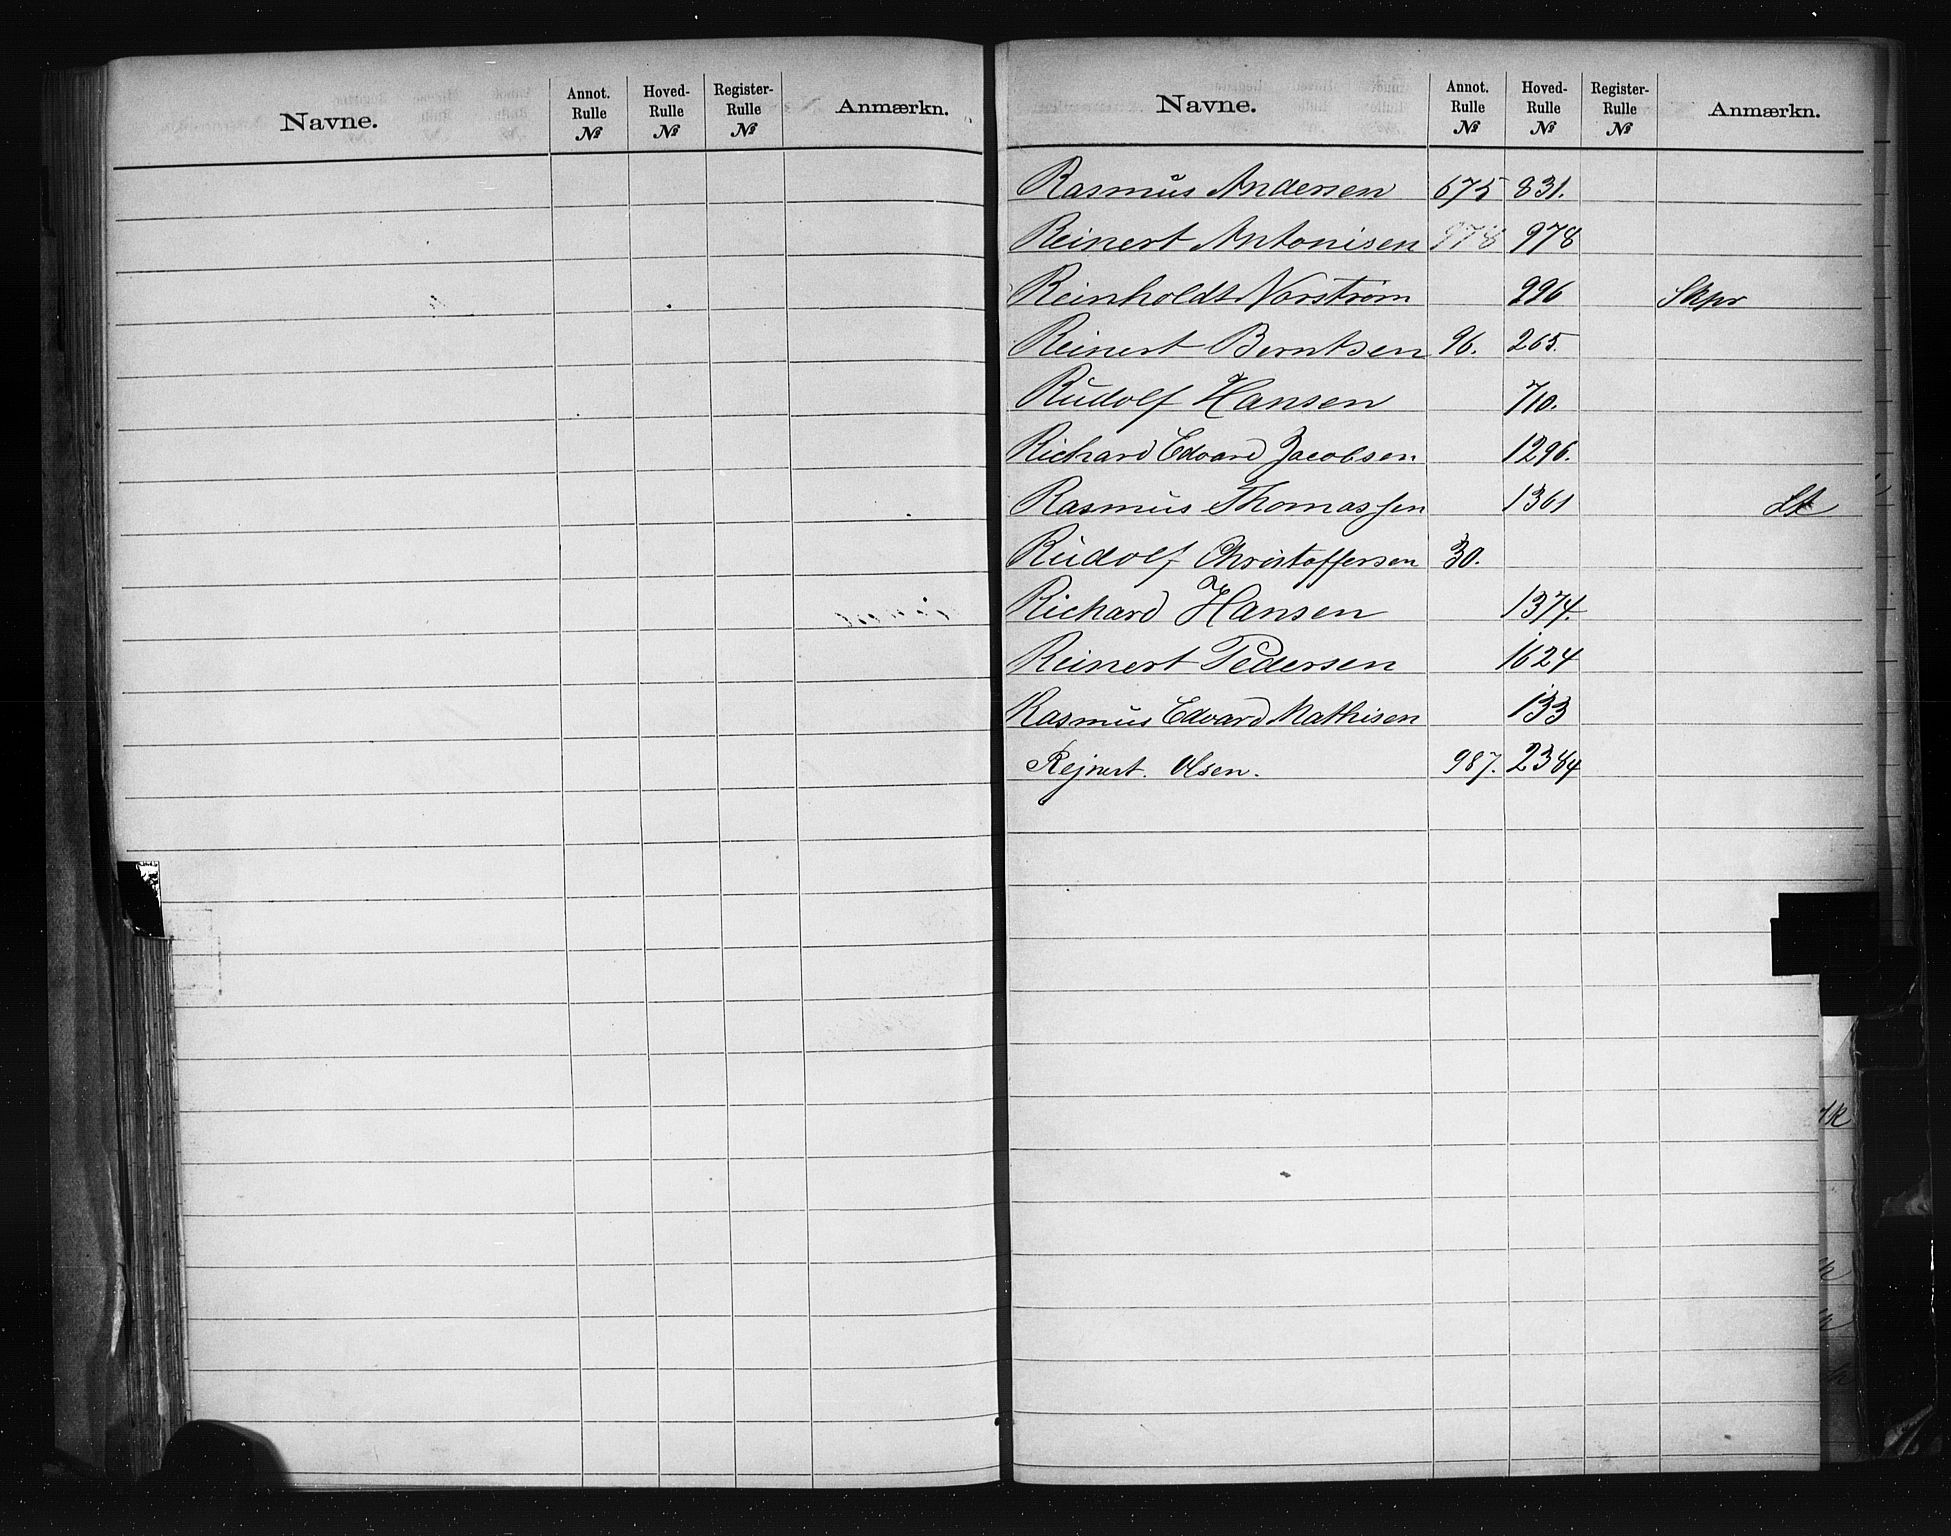 Navne. Annot. Rulle № Hoved-Rulle № Register-Rulle № Anmærkn.
Navne. Annot. Rulle № Hoved-Rulle № Register-Rulle № Anmærkn.
Rasmus Andersen 675 831.
Reinert Antonisen 978 978
Reinholdt Norström 996 Skpr
Reinert Berntsen 96. 265.
Rudolf Hansen 710.
Richard Edvard Jacobsen 1296.
Rasmus Thomassen 1361 Lt
Rudolf Christoffersen 30.
Richard Hansen 1374.
Reinert Pedersen 1624
Rasmus Edvard Mathisen 133
Rejnert. Olsen. 987. 2384